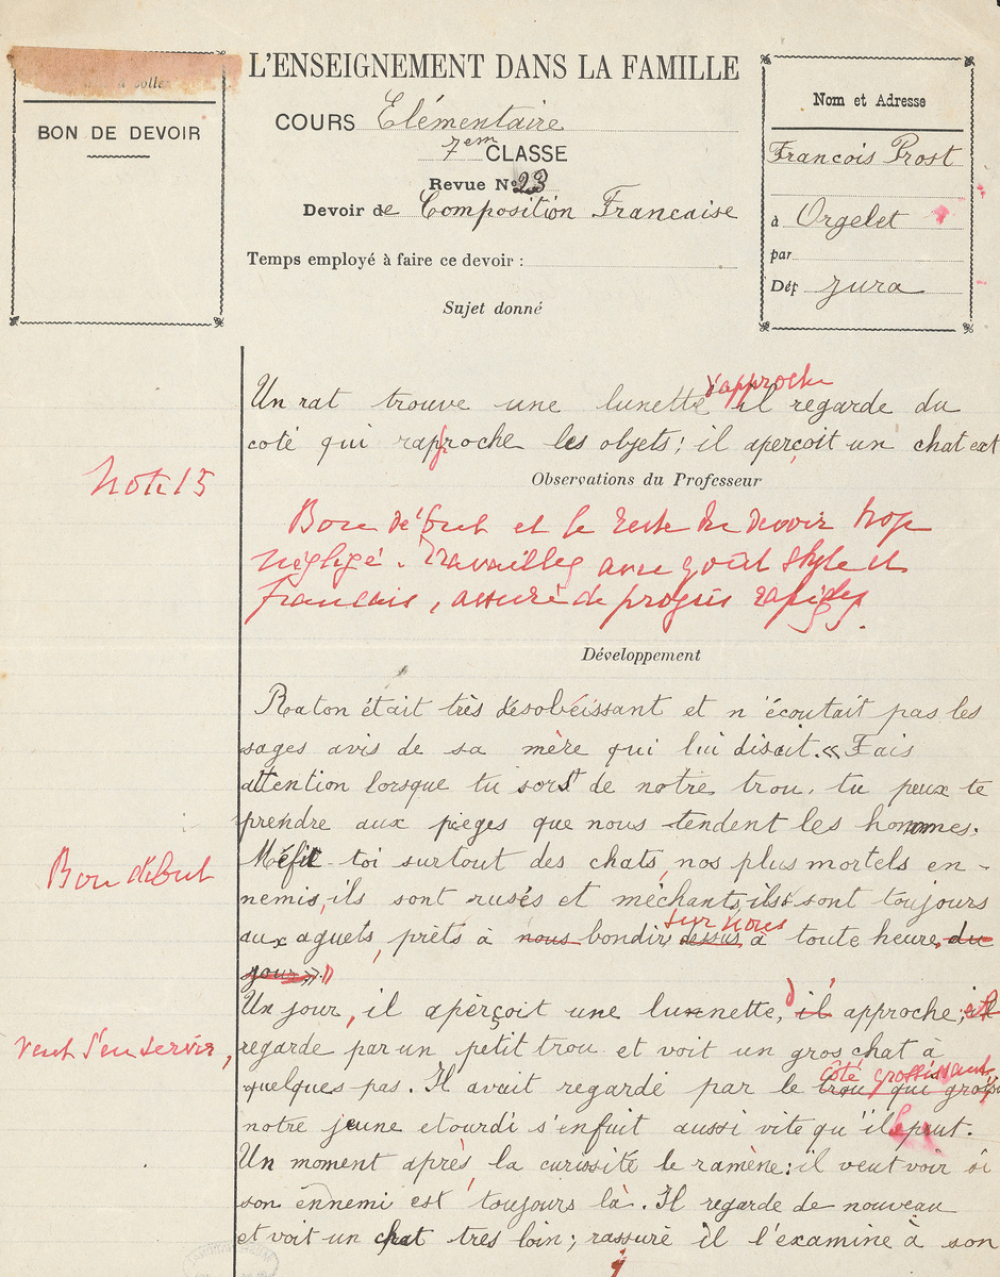 L'ENSEIGNEMENT DANS LA FAMILLE
BON DE DEVOIR
COURS Elémentaire
7em CLASSE
Revue No 23
Devoir de Composition Francaise
Temps employé à faire ce devoir :
Sujet donné
Nom et Adresse
Francois Prost
à Orgelet
par
Dép Jura
s'approche
Un rat trouve une lunette il regarde du
coté qui rapproche les objets; il aperçoit un chat est
Note 15
Observations du Professeur
Bon début et le reste du devoir trop
négligé. Travaillez avec goût style et
francais, assuré de progrès rapides.
Développement
Raton était très désobéissant et n'écoutait pas les
sages avis de sa mère qui lui disait. « Fais
attention lorsque tu sors de notre trou, tu peux te
prendre aux pieges que nous tendent les hommes.
Bon début
Méfie toi surtout des chats, nos plus mortels en-
nemis, ils sont rusés et méchants, ils sont toujours
sur nous
aux aguets, prêts à nous bondir dessus à toute heure, du
jour. »
Un jour, il aperçoit une lunnette, il approche, il
veut s'en servir,
regarde par un petit trou et voit un gros chat à
côté grossissant,
quelques pas. Il avait regardé par le trou qui
notre jeune etourdi s'enfuit aussi vite qu'il peut.
Un moment après, la curiosité le ramène: il veut voir si
son ennemi est toujours là. Il regarde de nouveau
et voit un chat tres loin; rassuré il l'examine à son